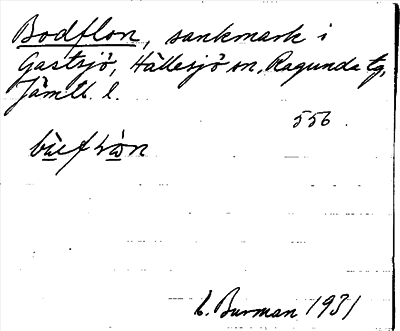 Bodflon, sankmark i
Gastsjö, Hällesjö sn, Ragunda tg,
Jämtl. l.
556.
Burman 1931